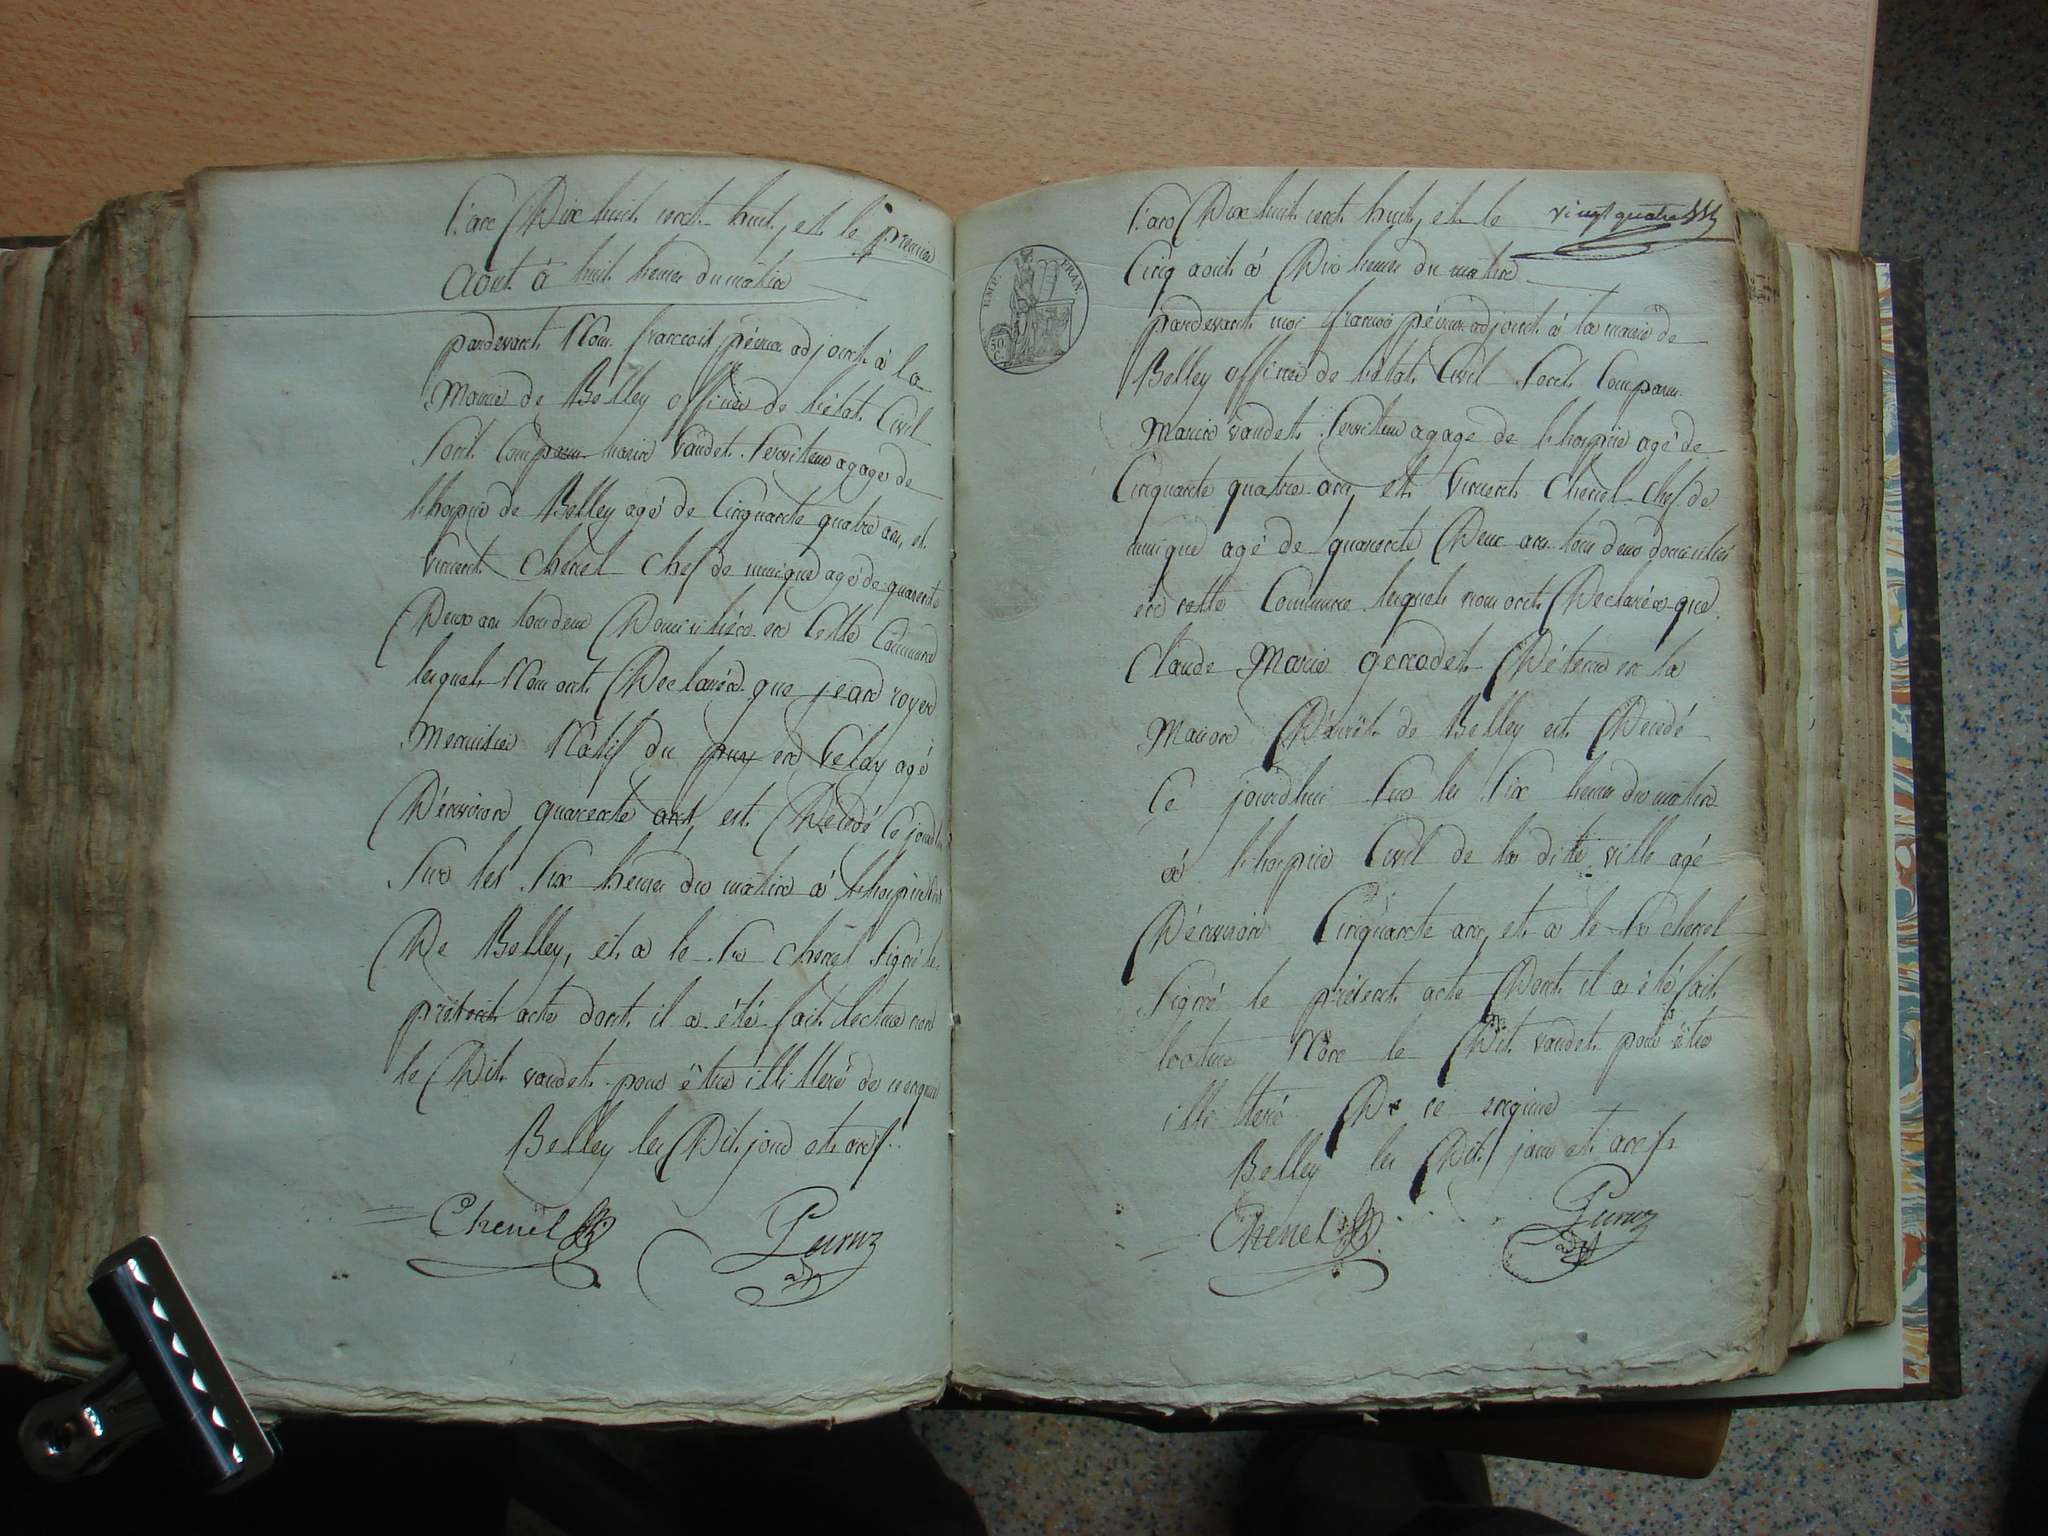 L'an Dix huit cent huit, et le premier
Aout à huit heures du matin
pardevant Nous françois péruz adjoint à la
Mairie de Belley officier de l'état Civil
Sont Comparus marin Vaudet Serviteur a gage de
l'hospice de Belley agé de Cinquante quatre ans, et
Vincent Chenel Chef de musique agé de quarente
Deux ans tous deux Domiciliés en Cette Commune
lesquels Nous ont Declarés que jean royer
Menuisier Natif du puy en Velay agé
D'environ quarente ans, est Decedé Ce jourdhui
Sur les Six heures du matin à l'hospice
De Belley, et a le Sr Chenel Signé le
présent acte dont il a été fait lecture non
le Dit vaudet pour être illitteré de ce enquis
Belley les Dit jour et an
Chenel
Peruz
adj
vingt quatre
L'an Dix huit cent huit, et le
Cinq aout à Dix heures du matin
pardevant nous françois péruz adjoint à la mairie de
Belley officier de l'état Civil Sont Comparus
Marin vaudet Serviteur a gage de l'hospice agé de
Cinquante quatre ans, et Vincent Chenel Chef de
musique agé de quarente Deux ans tous deux domiciliés
en cette Commune lesquels nous ont Declarés que
Claude Marie genodet Détenu en la
Maison D'arrêt de Belley est Decedé
Ce jourdhui Sur les Six heures du matin
à l'hospice Civil de la dite ville agé
D'environ Cinquante ans, et a le Sr Chenel
Signé le présent acte Dont il a été fait
lecture Non le Dit vaudet pour être
illitteré De ce enquis
Belley les Dit jour et an
EMP. FRAN.
50
C.
Chenel
Peruz
adj